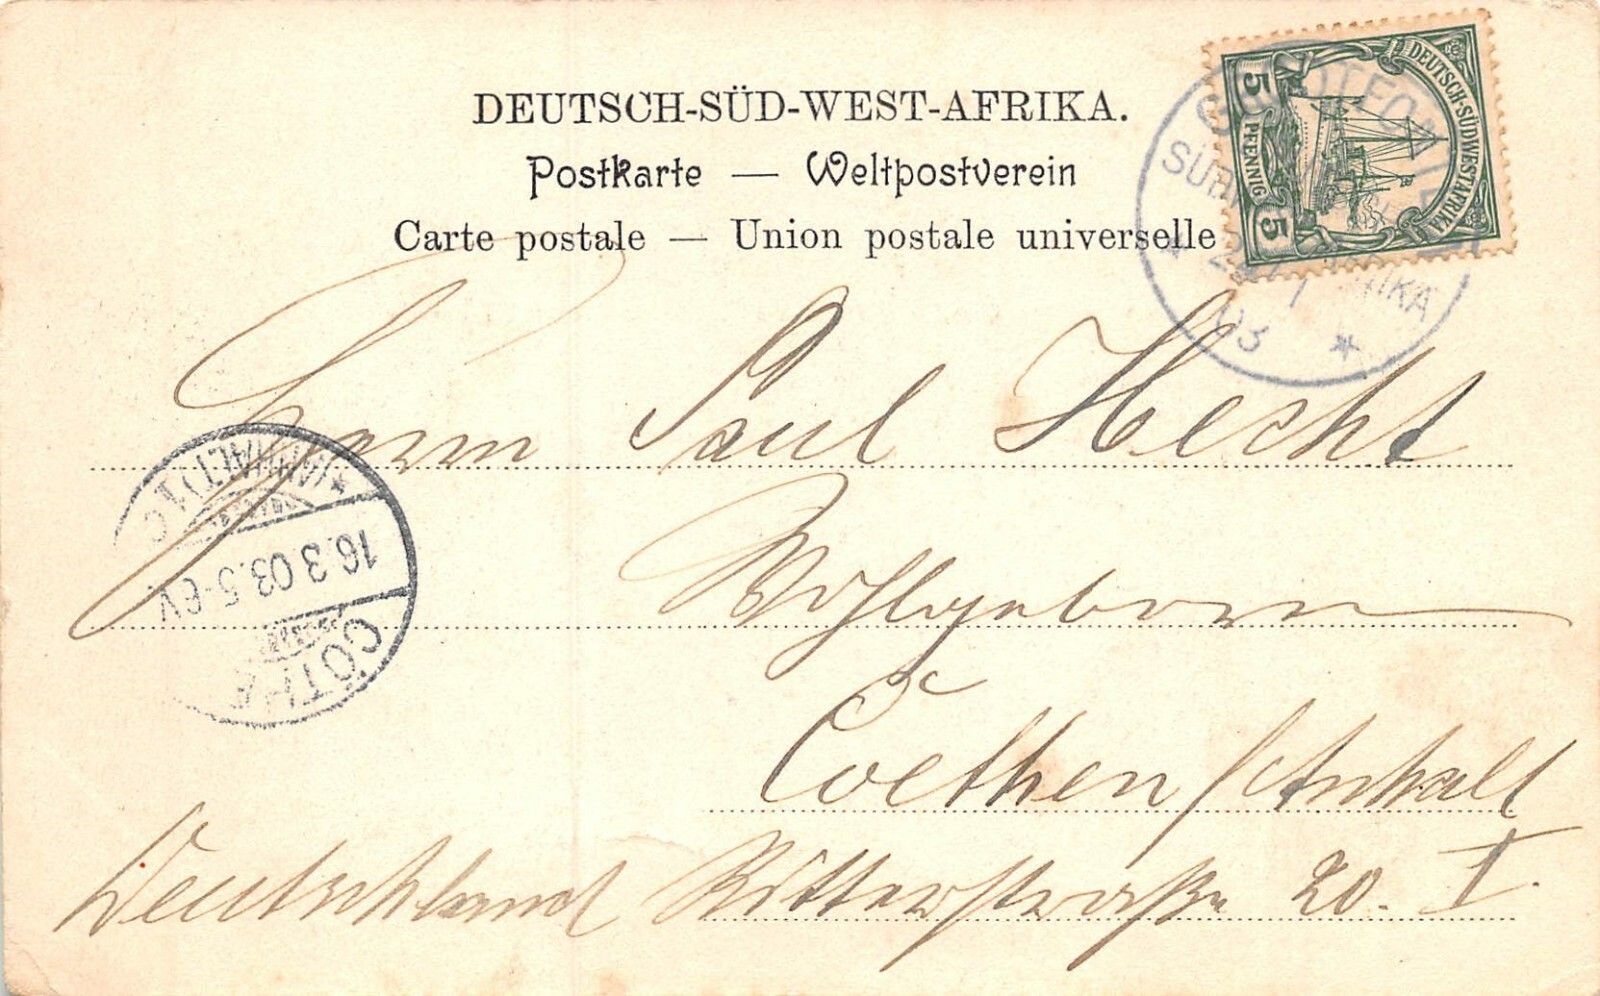 DEUTSCH-SÜD-WEST-AFRIKA.
Postkarte — Weltpostverein
Carte postale — Union postale universelle
DEUTSCH-SÜDWESTAFRIKA
5 PFENNIG 5
03
Herrn Paul Hecht
Wohlgeboren
Coethen / Anhalt
Deutschland Ritterstraße 20. I.
CÖTHEN
16.3.03.5-6V
(ANHALT)1.C